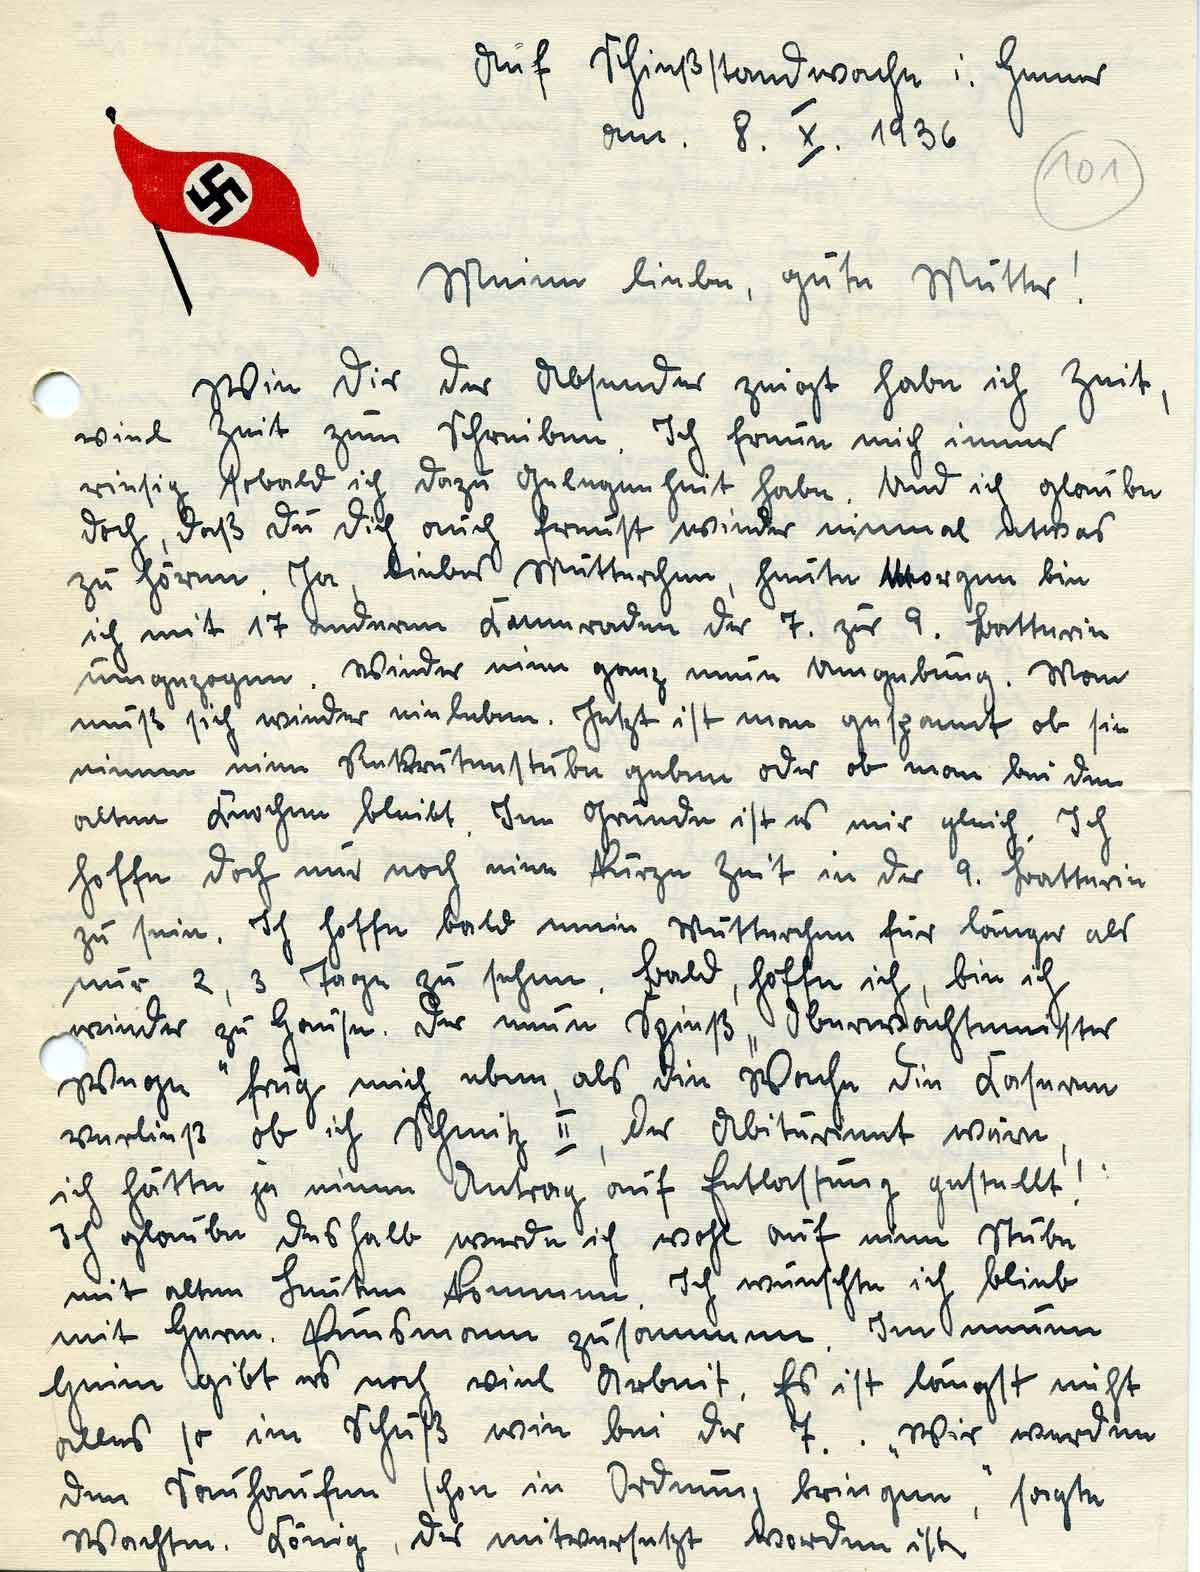 Auf Schießstandwache i. Hemer
am. 8. X. 1936
101
Meine liebe, gute Mutter!
Wie Dir der Absender zeigt habe ich Zeit,
viel Zeit zum Schreiben. Ich freue mich immer
riesig sobald ich dazu Gelegenheit habe. Und ich glaube
doch, daß Du Dich auch freust wieder einmal etwas
zu hören. Ja, liebes Mutterchen, heute Morgen bin
ich mit 17 anderen Kameraden der 7. zur 9. Batterie
umgezogen. Wieder eine ganz neue Umgebung. Man
muß sich wieder einleben. Jetzt ist man gespannt ob sie
einem eine Rekrutenstube geben oder ob man bei den
alten Knochen bleibt. Im Grunde ist es mir gleich. Ich
hoffe doch nur noch eine kurze Zeit in der 9. Batterie
zu sein. Ich hoffe bald mein Mutterchen für länger als
nur 2, 3 Tage zu sehen. Bald, hoffe ich, bin ich
wieder zu Hause. Der neue Spieß „Oberwachtmeister
Wege" frug mich eben, als die Wache die Kaserne
verließ ob ich Schmitz II, der Abiturient wäre,
ich hätte ja einen Antrag auf Entlastung gestellt!
Ich glaube deshalb werde ich wohl auf eine Stube
mit alten Leuten kommen. Ich wünschte ich blieb
mit Herm. Künsmann zusammen. Im neuen
Heim gibt es noch viel Arbeit. Es ist längst nicht
alles so im Schuß wie bei der 7. . „Wir werden
den Sauhaufen schon in Ordnung bringen," sagte
Wachtm. König, der mitversetzt worden ist.